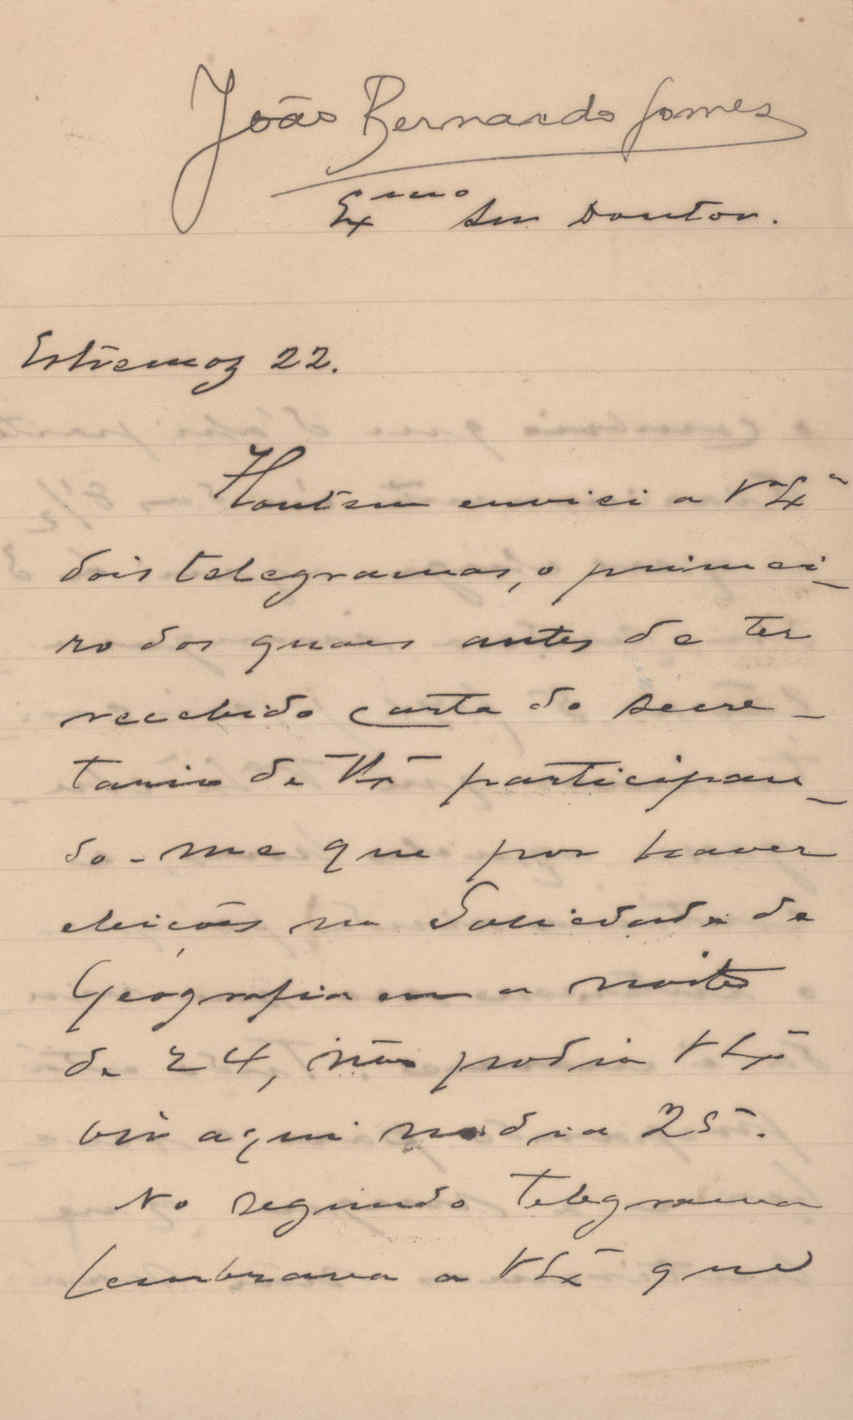 João Bernardo Gomes
Exmo Snr Doutor.
Estremoz 22.
Hontem enviei a V Exª
dois telegramas, o primei-
ro dos quaes antes de ter
recebido carta do secre-
tario de V Exª participan-
do-me que por haver
eleições na Sociedade de
Geógrafia em a noite
de 24, não podia V Exª
vir aqui no dia 25.
No segundo telegrama
lembrava a V Exª que